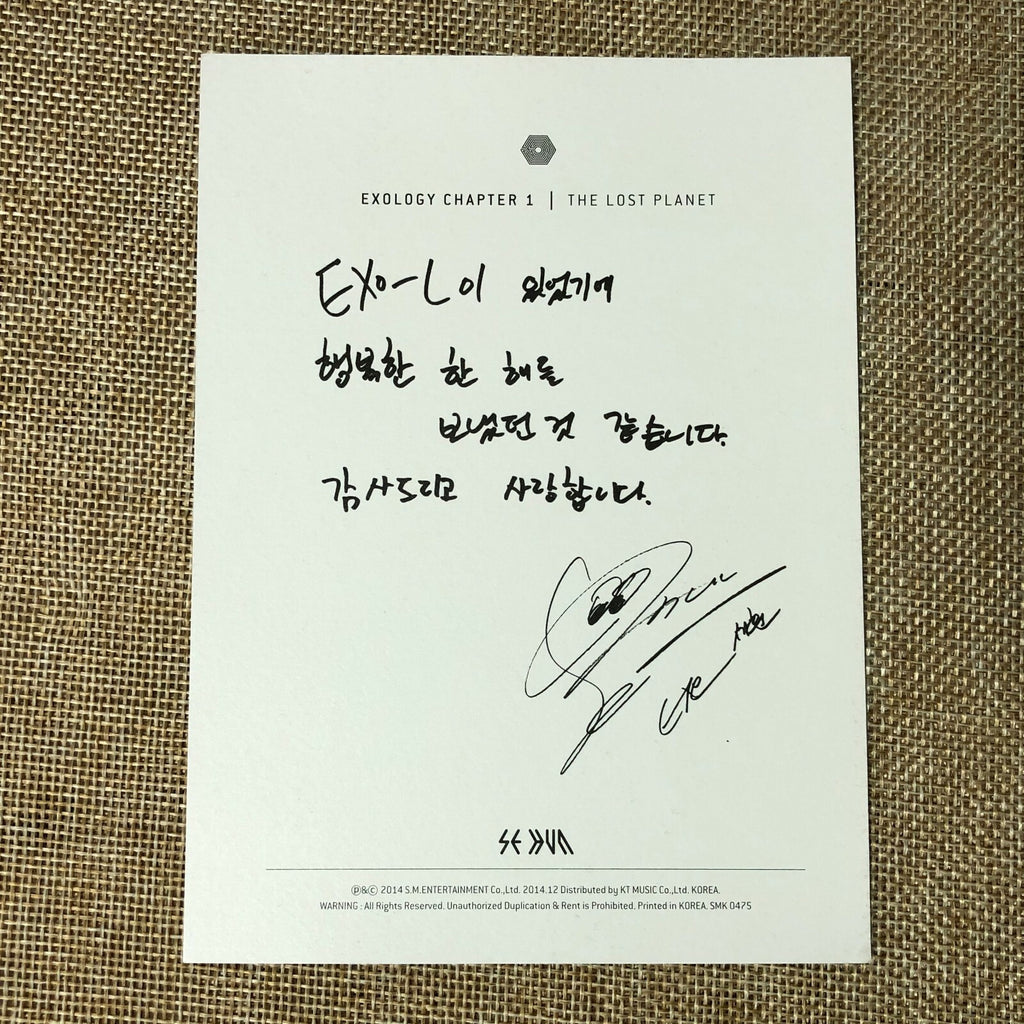 EXOLOGY CHAPTER 1 | THE LOST PLANET
EXO-L이 있었기에
행복한 한 해를
보냈던 것 같습니다.
감사드리고 사랑합니다.
세훈
SEHUN
℗&© 2014 S.M.ENTERTAINMENT Co.,Ltd. 2014.12 Distributed by KT MUSIC Co.,Ltd. KOREA.
WARNING : All Rights Reserved. Unauthorized Duplication & Rent is Prohibited. Printed in KOREA. SMK 0475